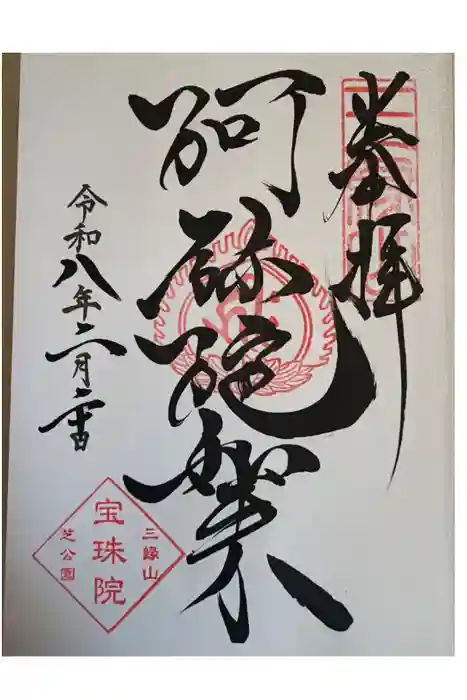 奉拝
阿弥陀如来
令和八年二月
三縁山
宝珠院
芝公園